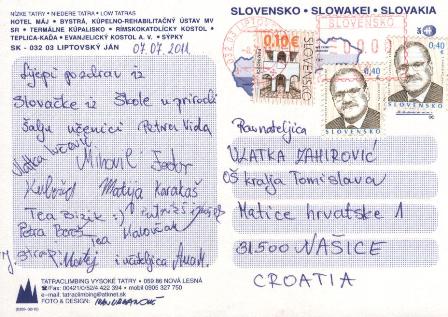 NÍZKE TATRY • NIEDERE TATRA • LOW TATRAS
HOTEL MÁJ • BYSTRÁ, KÚPELNO-REHABILITAČNÝ ÚSTAV MV
SR • TERMÁLNE KÚPALISKO • RÍMSKOKATOLÍCKY KOSTOL •
TEPLICA-KAĎA • EVANJELICKÝ KOSTOL A. V. • SÝPKY
SK - 032 03 LIPTOVSKÝ JÁN 07.07.2011
Lijepi pozdrav iz
Slovačke iz Škole u prirodi
šalju učenici Petra Vida
Mihovil
Matija Karakaš
Tea Bizik :)
Petra
Tea
Matej i učiteljica Ana M.
TATRACLIMBING VYSOKÉ TATRY • 059 86 NOVÁ LESNÁ
/Fax: 00421/0/52/4 422 394 • mobil 0905 327 750
e-mail: tatraclimbing@stknet.sk
FOTO & DESIGN:
SLOVENSKO • SLOWAKEI • SLOVAKIA
SLOVENSKO
0,10€
SLOVENSKO
0,40
SLOVENSKO
0,40
SLOVENSKO
Ravnateljica
VLATKA ZAHIROVIĆ
OŠ kralja Tomislava
Matice hrvatske 1
31500 NAŠICE
CROATIA